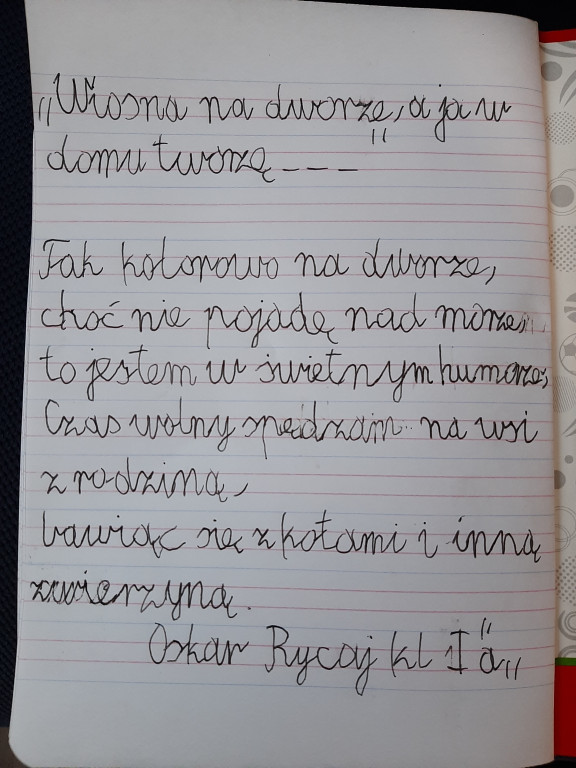 „Wiosna na dworze, a ja w
domu tworzę" _ _ _
Tak kolorowo na dworze,
choć nie pojadę nad morze,
to jestem w świetnym humorze,
Czas wolny spędzam na wsi
z rodziną,
bawiąc się z kotami i inną
zwierzyną.
Oskar Rycaj kl I „a"